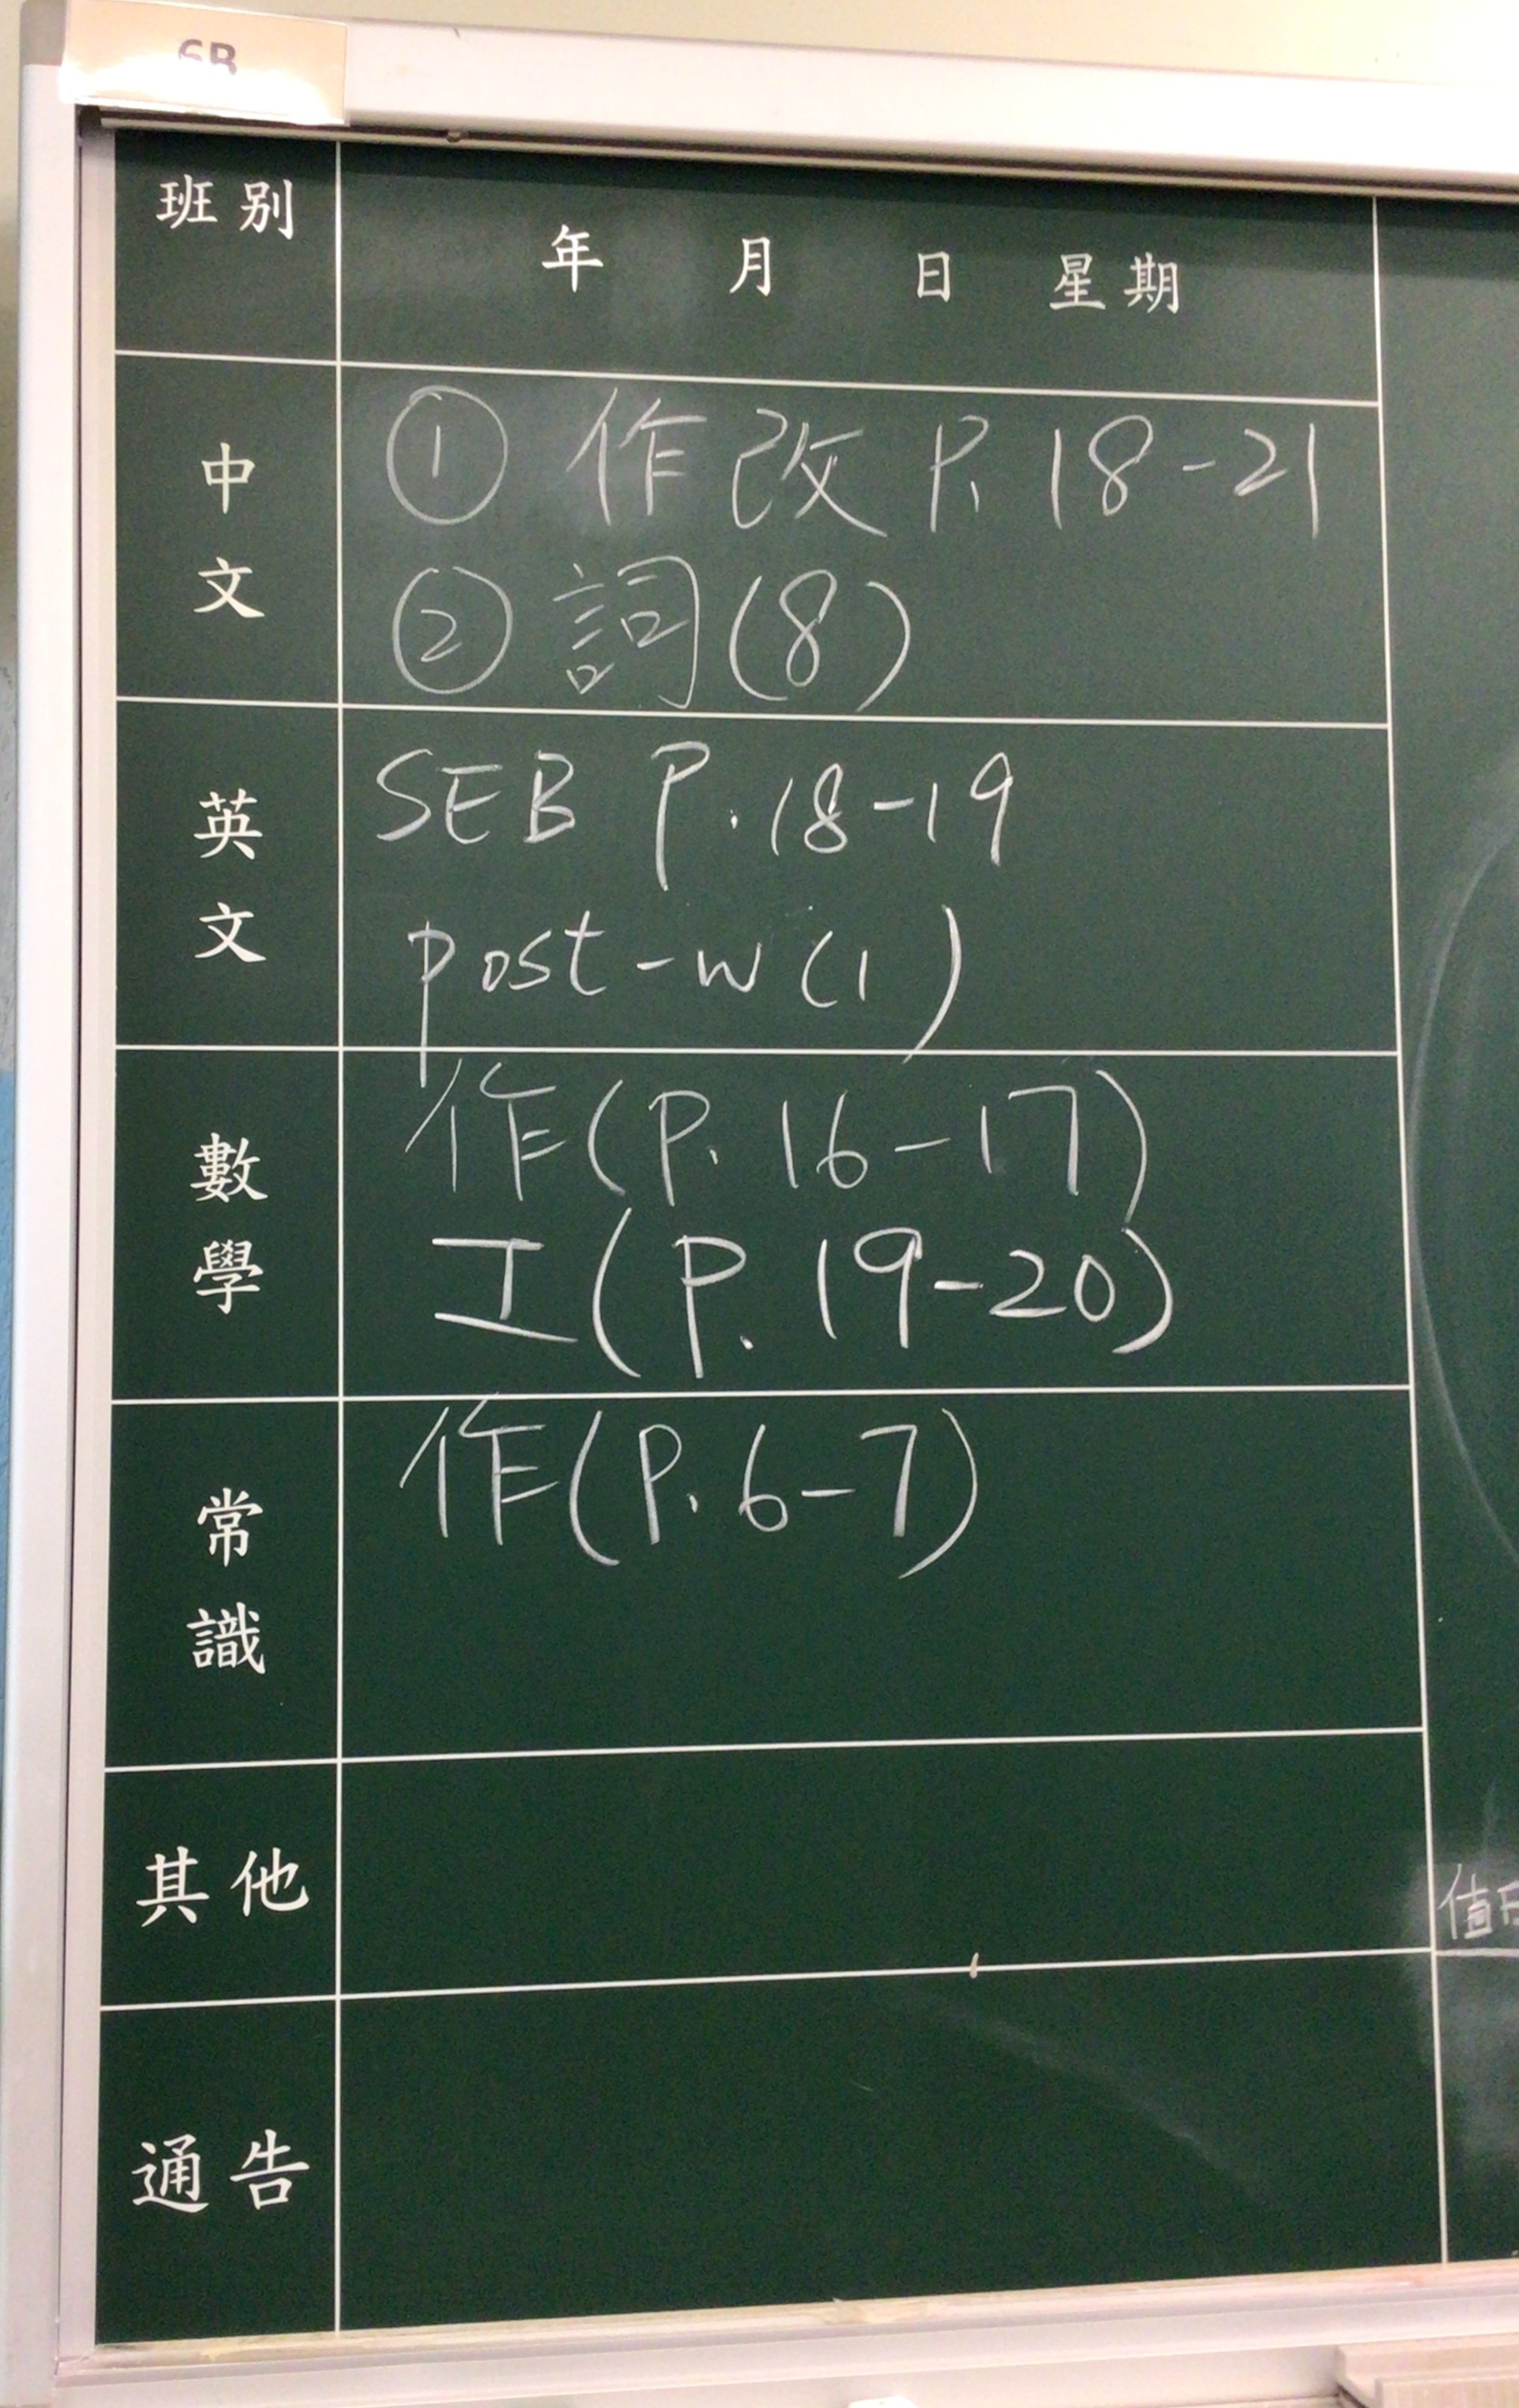 6B
班別
年 月 日 星期
中文
① 作改 P. 18-21
② 詞(8)
英文
SEB P. 18-19
post-w(1)
數學
作(P. 16-17)
工(P. 19-20)
常識
作(P. 6-7)
其他
值日
通告